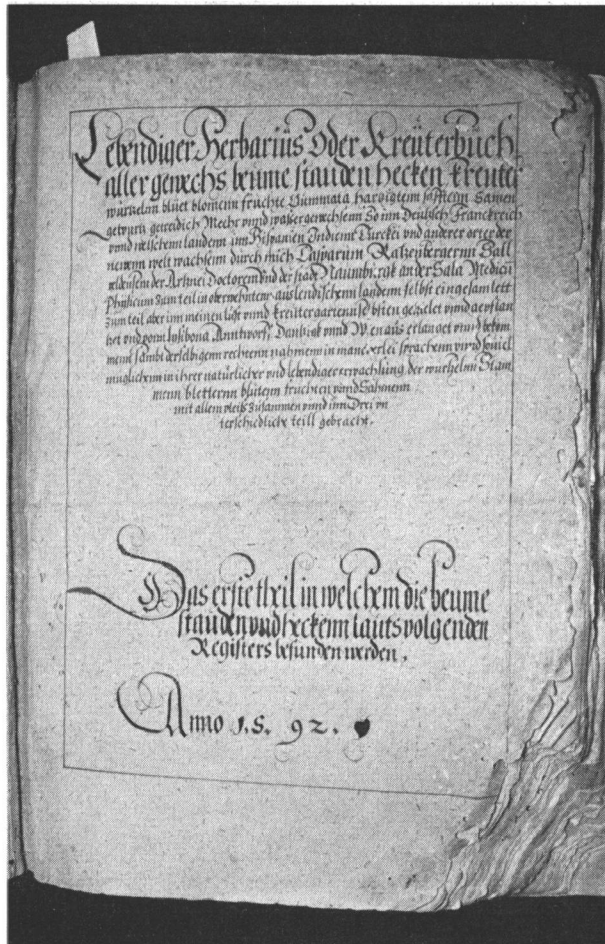 Lebendiger Herbarius Oder Kreüterbuch
aller gewechs beume stauden hecken kreuter
würtzelnn blüet blomenn früchte Gummata Harbigtenn safftenn Samen
getreidich Mehr vnnd waßer gewechsenn So inn Deudsch Franckreich
vnnd welschenn landenn inn Hispanien Indienn Türckei vnd anderer örter der
newenn welt wachsenn durch mich Casparum Ratzenbergernn Sall
veldensem der Artznei Doctorem vnd der stadt Naumburgk an der Sala Medicū
Phÿsicum zum teil in oberwehnten auslendischenn landenn selbst eingesamlett
zum teil aber inn meinen vnnd kreutergarten selbsten gezielet vnnd gepflan
tzet vnd vonn Lusibona Anntworff, Dantzigk vnnd Wien aüs erlanget vnnd bekom
menn sambt derselbigenn rechtenn nahmenn in mancherlei sprachenn vnnd souiel
müglichenn in ihrer natürlicher vnd lebendiger erwachsung der würtzelnn Stam
menn bletternn blütenn früchten vnnd Sahmenn
mit allem vleis zusammen vnnd inn Drei vn
terschiedliche teill gebracht.
Das erste theil in welchem die beume
stauden vnd heckenn lauts volgenden
Registers befunden werden.
Anno 1.5.92.